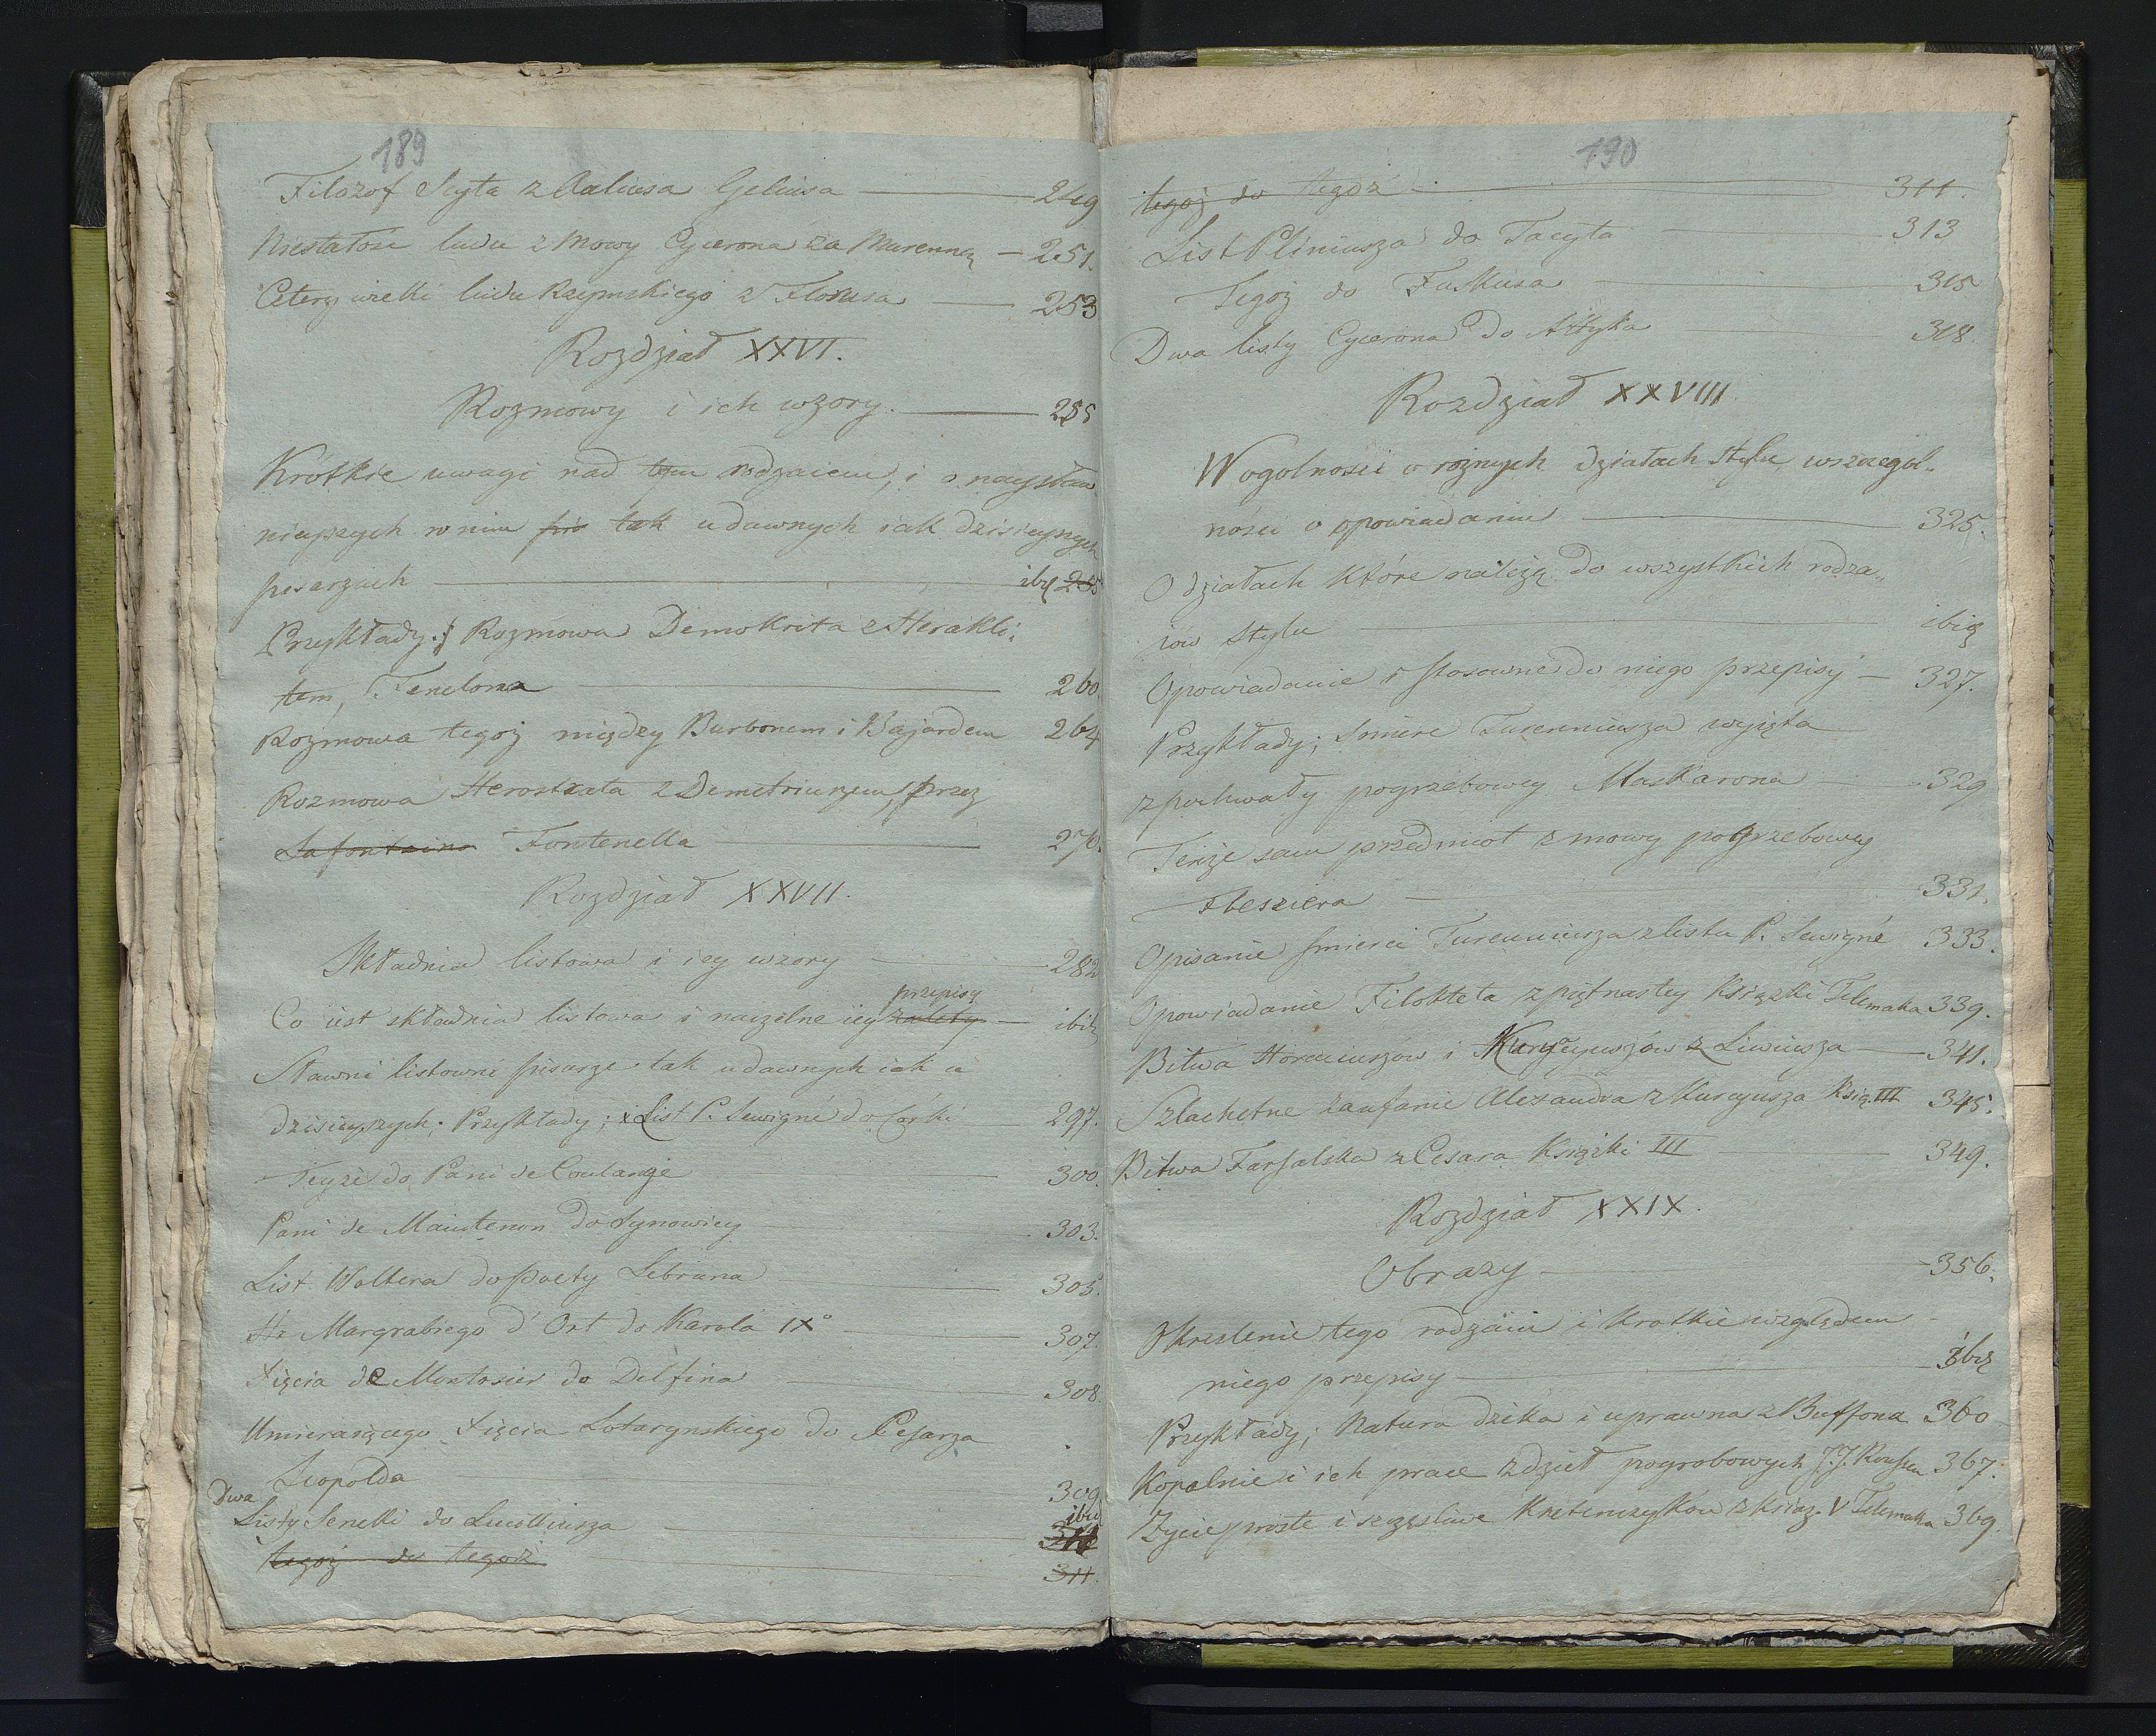 189
Filozof Scyta z Auliusa Geliusa — 249
Niestałość ludu z Mowy Cycerona za Murenną — 251.
Cztery wieki ludu Rzymskiego z Florusa — 253
Rozdział XXVI.
Rozmowy i ich wzory. — 255
Krótkie uwagi nad tym rodzaiem, i o naysław
nieyszych w nim tak u dawnych iak dzisieyszych
pisarzach — ibid 255
Przykłady: Rozmowa Demokrita z Herakli.
tem, Fenelona — 260
Rozmowa tegoż między Burbonem i Bajardem 264
Rozmowa Herostrata z Demetriuszem, przez
Lafontaina Fontenella — 270.
Rozdział XXVII.
Składnia listowa i iey wzory — 282
przepisy
Co iest składnia listowa i naczelne iey zalety — ibid
Sławni listowni pisarze tak u dawnych iak u
dzisieyszych; Przykłady; List P. Sewigné do Córki 297.
Teyże do Pani de Coulange 300.
Pani de Maintenon do Synowicy 303.
List Woltera do poety Lebruna 305.
Margrabiego d'Ort do Karola IX° — 307.
Xięcia de Montosier do Delfina — 308.
Umieraiącego Xięcia Lotaryńskiego do Cesarza
Leopolda — 309
Dwa
Listy Seneki do Lucilliusza — ibid
tegoż do tegoż — 311.
190
tegoż do tegoż — 311.
List Pliniusza do Tacyta — 313
Tegoż do Fuskusa — 315
Dwa listy Cycerona do Attyka — 318.
Rozdział XXVIII
W ogolności o rożnych działach stylu, wszczegól-
ności o opowiadaniu — 325.
O działach które należą do wszystkich rodza„
iow stylu — ibid
Opowiadanie i stosowne do niego przepisy — 327.
Przykłady; Smierć Turenniusza wyięta
z pochwały pogrzebowey Maskarona — 329
Tenże sam przedmiot z mowy pogrzebowey
Flesziera — 331.
Opisanie smierci Turenniusza z listu P. Sewigné 333.
Opowiadanie Filokteta z piętnastey Książki Telemaka 339.
Bitwa Horaciuszów i Kuryacyuszów z Liwiusza — 341.
Szlachetne zaufanie Alexandra z Kurcyusza Ksią. III 345.
Bitwa Farsalska z Cesara Książki III — 349.
Rozdział XXIX.
Obrazy — 356.
Okreslenie tego rodzaiu i krotkie względem
niego przepisy — ibid
Przykłady; Natura dzika i uprawna z Buffona 360
Kopalnie i ich prace z dzieł pogrobowych J.J. Roussea 367.
Życie proste i szczęsliwe Kretenczyków z Książ. V Telemaka 369.